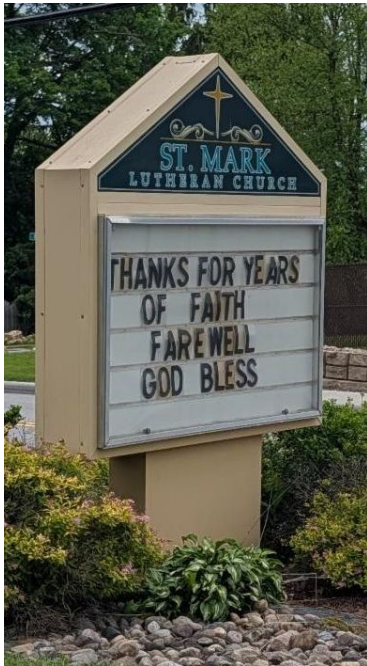 ST. MARK
LUTHERAN CHURCH
THANKS FOR YEARS
OF FAITH
FAREWELL
GOD BLESS